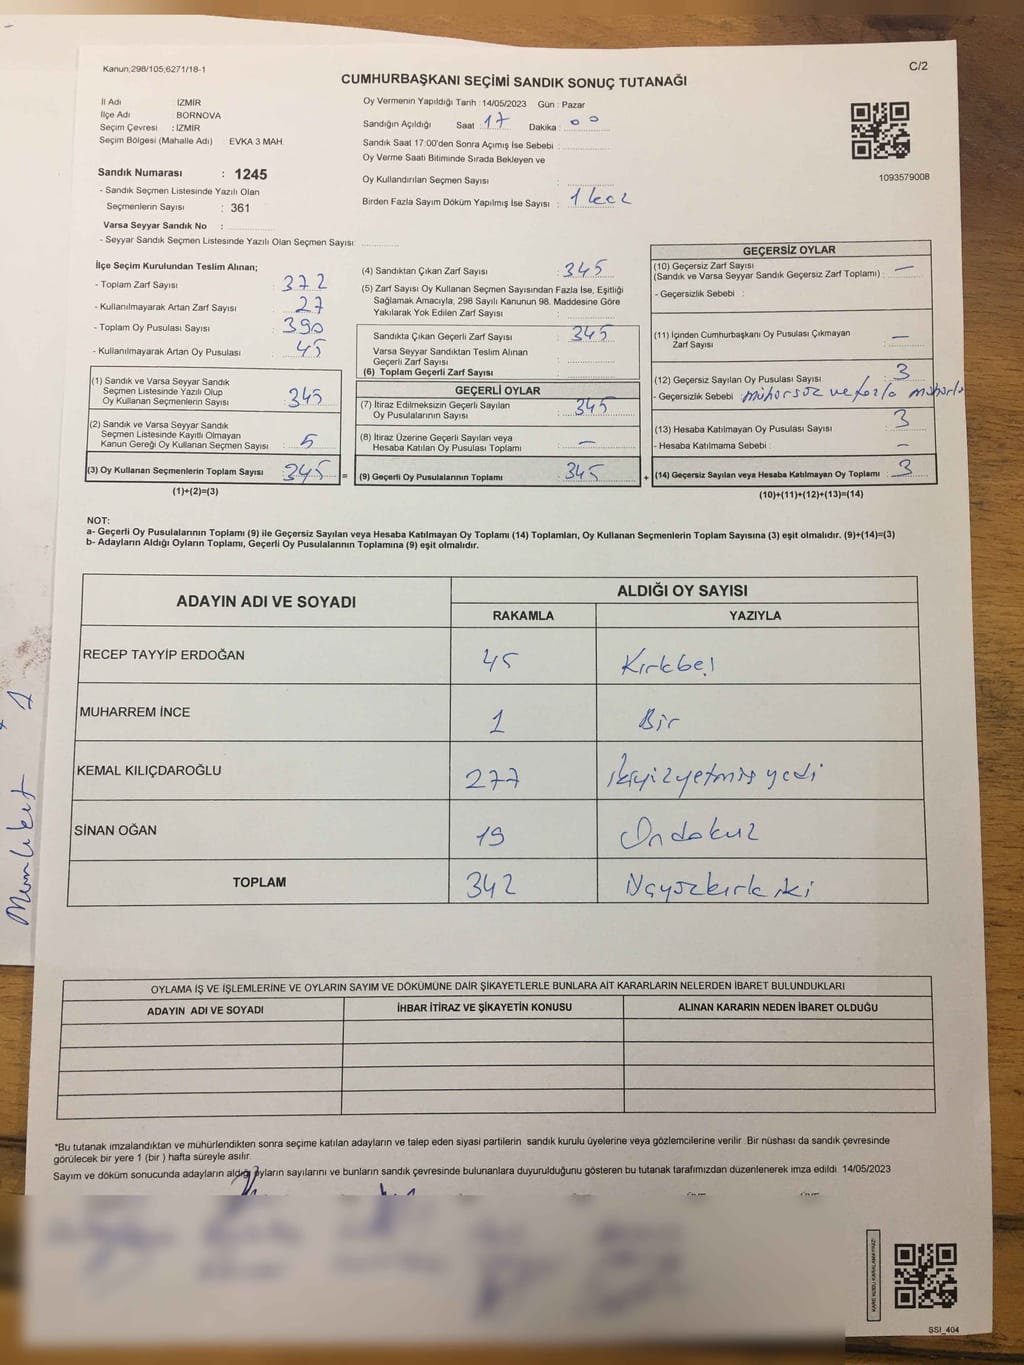 Kanun;298/105;6271/18-1
C/2
CUMHURBAŞKANI SEÇİMİ SANDIK SONUÇ TUTANAĞI
İl Adı İZMİR
İlçe Adı BORNOVA
Seçim Çevresi : İZMİR
Seçim Bölgesi (Mahalle Adı) EVKA 3 MAH.
Sandık Numarası : 1245
- Sandık Seçmen Listesinde Yazılı Olan
Seçmenlerin Sayısı : 361
Varsa Seyyar Sandık No :
- Seyyar Sandık Seçmen Listesinde Yazılı Olan Seçmen Sayısı:
Oy Vermenin Yapıldığı Tarih :14/05/2023 Gün : Pazar
Sandığın Açıldığı Saat : 17 Dakika : 00
Sandık Saat 17:00'den Sonra Açımış İse Sebebi :
Oy Verme Saati Bitiminde Sırada Bekleyen ve
Oy Kullandırılan Seçmen Sayısı :
Birden Fazla Sayım Döküm Yapılmış İse Sayısı : 1 kez
1093579008
İlçe Seçim Kurulundan Teslim Alınan;
- Toplam Zarf Sayısı : 372
- Kullanılmayarak Artan Zarf Sayısı : 27
- Toplam Oy Pusulası Sayısı : 390
- Kullanılmayarak Artan Oy Pusulası : 45
(1) Sandık ve Varsa Seyyar Sandık
Seçmen Listesinde Yazılı Olup
Oy Kullanan Seçmenlerin Sayısı : 345
(2) Sandık ve Varsa Seyyar Sandık
Seçmen Listesinde Kayıtlı Olmayan
Kanun Gereği Oy Kullanan Seçmen Sayısı : 5
(3) Oy Kullanan Seçmenlerin Toplam Sayısı : 345 =
(1)+(2)=(3)
(4) Sandıktan Çıkan Zarf Sayısı : 345
(5) Zarf Sayısı Oy Kullanan Seçmen Sayısından Fazla İse, Eşitliği
Sağlamak Amacıyla, 298 Sayılı Kanunun 98. Maddesine Göre
Yakılarak Yok Edilen Zarf Sayısı :
Sandıkta Çıkan Geçerli Zarf Sayısı : 345
Varsa Seyyar Sandıktan Teslim Alınan
Geçerli Zarf Sayısı :
(6) Toplam Geçerli Zarf Sayısı :
GEÇERLİ OYLAR
(7) İtiraz Edilmeksizin Geçerli Sayılan
Oy Pusulalarının Sayısı : 345
(8) İtiraz Üzerine Geçerli Sayılan veya
Hesaba Katılan Oy Pusulası Toplamı : —
(9) Geçerli Oy Pusulalarının Toplamı : 345 +
GEÇERSİZ OYLAR
(10) Geçersiz Zarf Sayısı
(Sandık ve Varsa Seyyar Sandık Geçersiz Zarf Toplamı) : —
- Geçersizlik Sebebi :
(11) İçinden Cumhurbaşkanı Oy Pusulası Çıkmayan
Zarf Sayısı : —
(12) Geçersiz Sayılan Oy Pusulası Sayısı : 3
- Geçersizlik Sebebi : mühürsüz ve fazla mühürlü
(13) Hesaba Katılmayan Oy Pusulası Sayısı : 3
- Hesaba Katılmama Sebebi : —
(14) Geçersiz Sayılan veya Hesaba Katılmayan Oy Toplamı : 3
(10)+(11)+(12)+(13)=(14)
NOT:
a- Geçerli Oy Pusulalarının Toplamı (9) ile Geçersiz Sayılan veya Hesaba Katılmayan Oy Toplamı (14) Toplamları, Oy Kullanan Seçmenlerin Toplam Sayısına (3) eşit olmalıdır. (9)+(14)=(3)
b- Adayların Aldığı Oyların Toplamı, Geçerli Oy Pusulalarının Toplamına (9) eşit olmalıdır.
ADAYIN ADI VE SOYADI ALDIĞI OY SAYISI
RAKAMLA YAZIYLA
RECEP TAYYİP ERDOĞAN 45 Kırkbeş
MUHARREM İNCE 1 Bir
KEMAL KILIÇDAROĞLU 277 ikiyüzyetmiş yedi
SİNAN OĞAN 19 Ondokuz
TOPLAM 342 üçyüzkırk iki
Memleket
1
OYLAMA İŞ VE İŞLEMLERİNE VE OYLARIN SAYIM VE DÖKÜMÜNE DAİR ŞİKAYETLERLE BUNLARA AİT KARARLARIN NELERDEN İBARET BULUNDUKLARI
ADAYIN ADI VE SOYADI İHBAR İTİRAZ VE ŞİKAYETİN KONUSU ALINAN KARARIN NEDEN İBARET OLDUĞU
*Bu tutanak imzalandıktan ve mühürlendikten sonra seçime katılan adayların ve talep eden siyasi partilerin sandık kurulu üyelerine veya gözlemcilerine verilir. Bir nüshası da sandık çevresinde
görülecek bir yere 1 (bir ) hafta süreyle asılır.
Sayım ve döküm sonucunda adayların aldığı oyların sayılarını ve bunların sandık çevresinde bulunanlara duyurulduğunu gösteren bu tutanak tarafımızdan düzenlenerek imza edildi. 14/05/2023
SSI_404